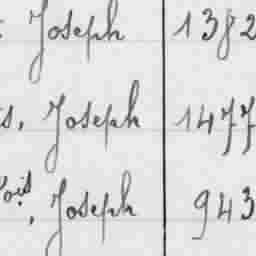 Joseph 1382
s, Joseph 1477
ois, Joseph 943